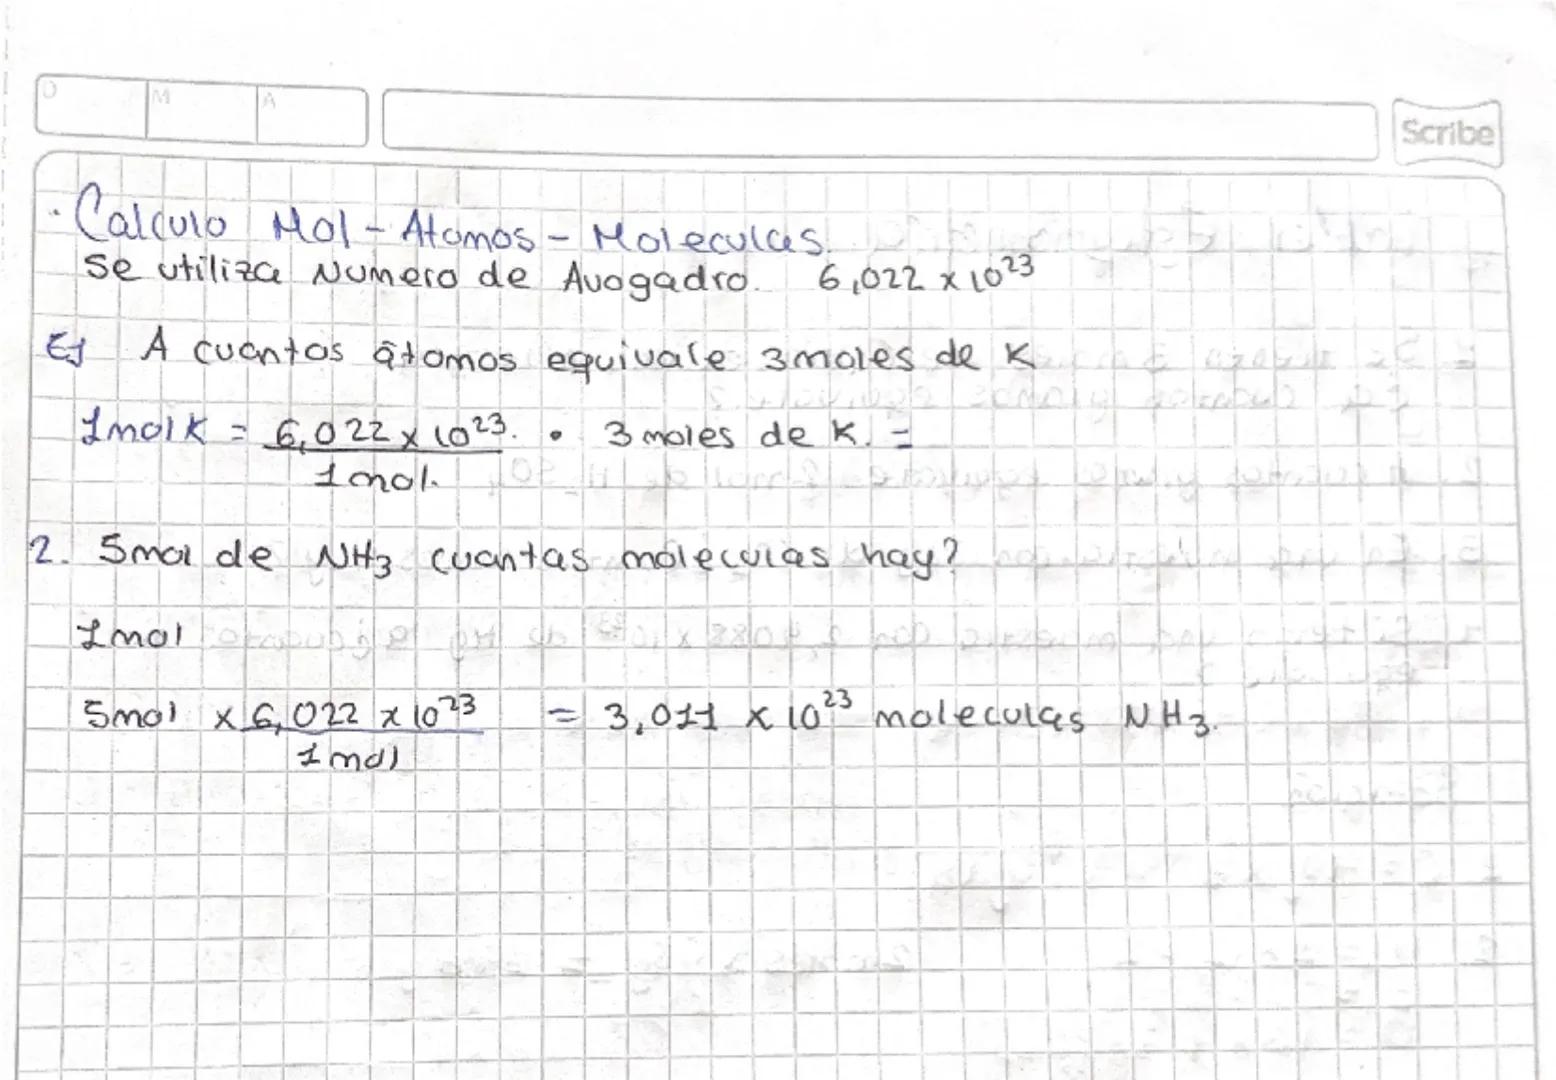 D M A
Scribe
· Calculo Mol - Atomos - Moleculas.
se utiliza Numero de Avogadro. 6,022 x 10²³
Ej A cuantos átomos equivale 3 moles de K
1mol K = 6,022 x 10²³. • 3 moles de K. =
1 mol.
2. 5mol de NH₃ cuantas moleculas hay?
1mol
5mol x 6,022 x 10²³ = 3,011 x 10²³ moleculas NH₃.
1 mol